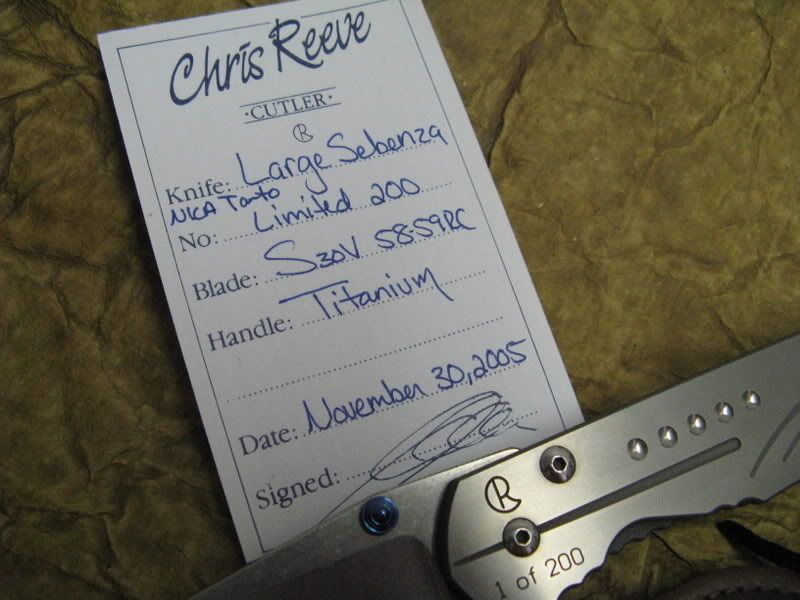 Chris Reeve
·CUTLER·
R
Knife: Large Sebenza
NICA Tanto
No: Limited 200
Blade: S30V 58-59RC
Handle: Titanium
Date: November 30, 2005
Signed:
R
1 of 200